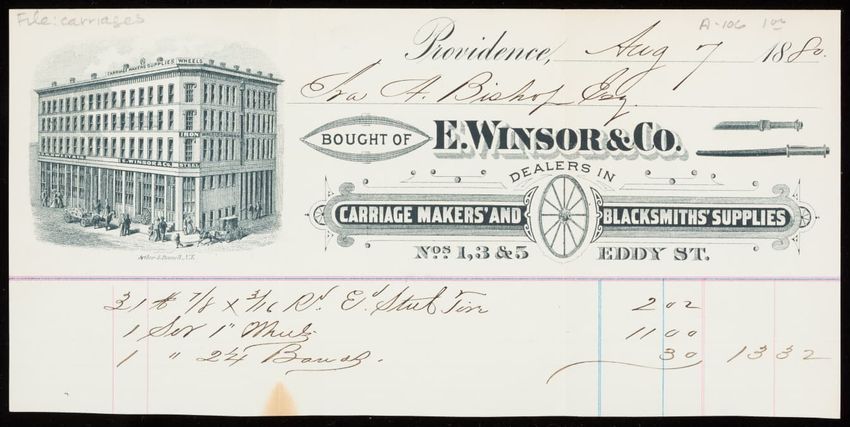 File: carriages
A-106 1 00
Providence, Aug 7 1880.
Ira A. Bishop Esq.
CARRIAGE MAKERS SUPPLIES WHEELS
IRON
E. WINSOR & CO.
STEEL
BOUGHT OF E. WINSOR & CO.
DEALERS IN
CARRIAGE MAKERS' AND BLACKSMITHS' SUPPLIES
Nos 1, 3 & 5 EDDY ST.
31 # 7/8 x 3/16 Rd Ed Steel Tire 2 02
1 Set 1" Wheels 11 00
1 " 2 1/4 Bands. 30 13 32